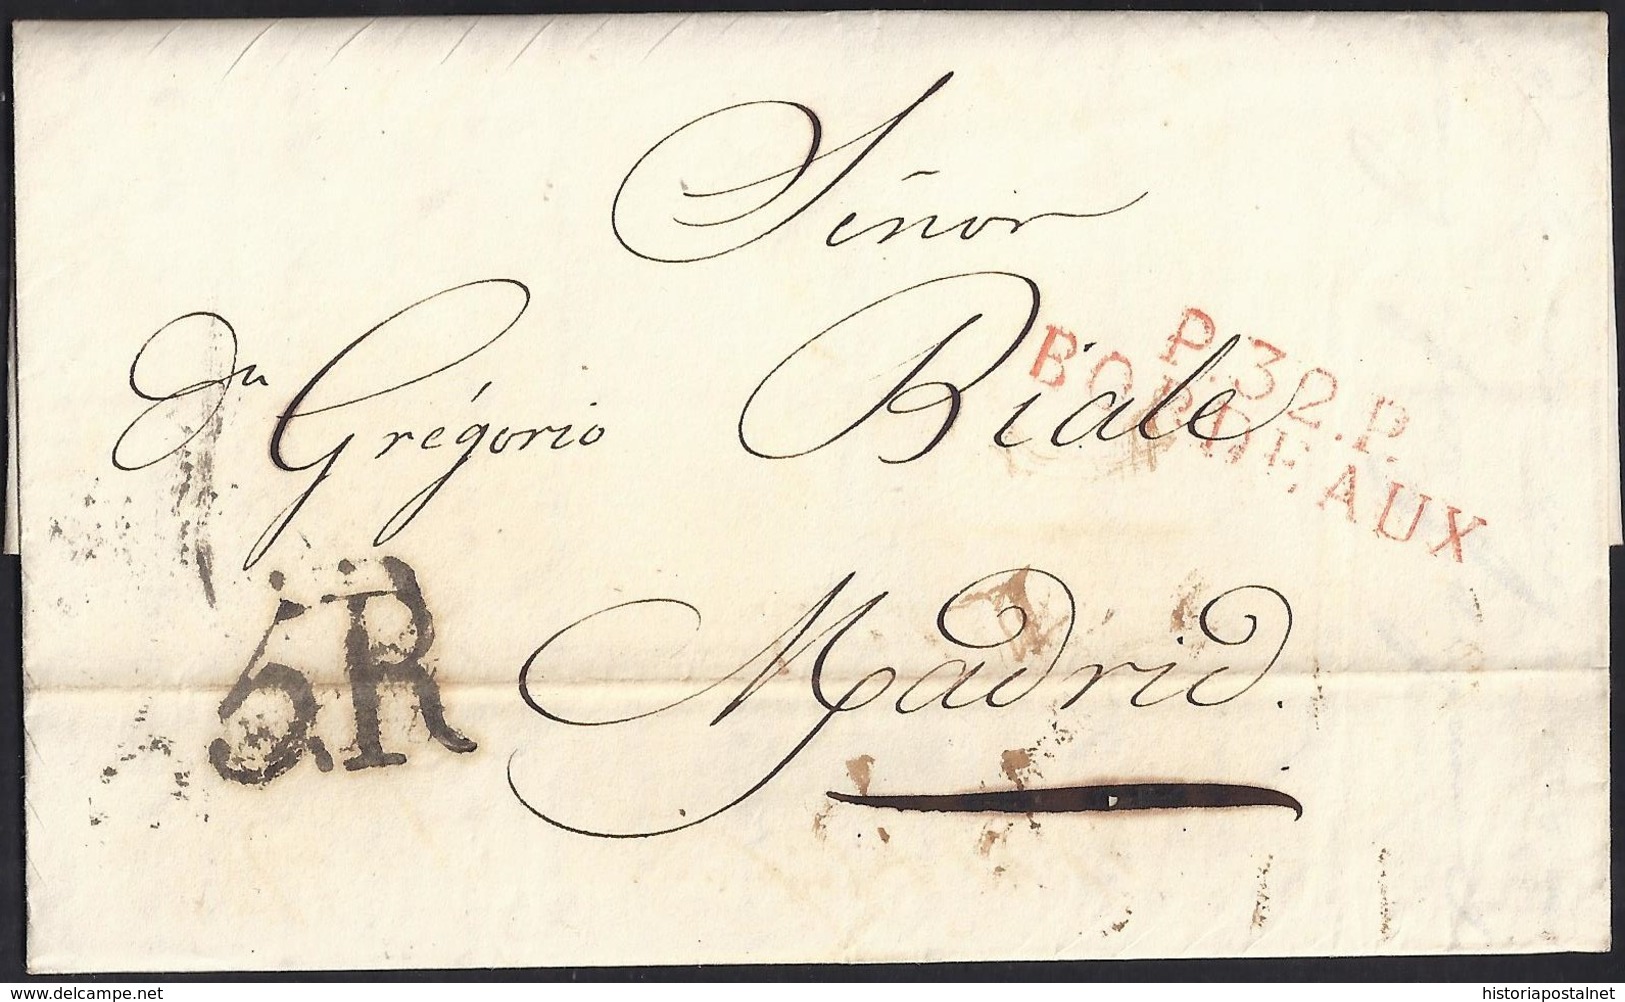 Señor
Dn Grégorio Biale
P.32.P.
BORDEAUX
5.R
Madrid.
www.delcampe.net
historiapostalnet